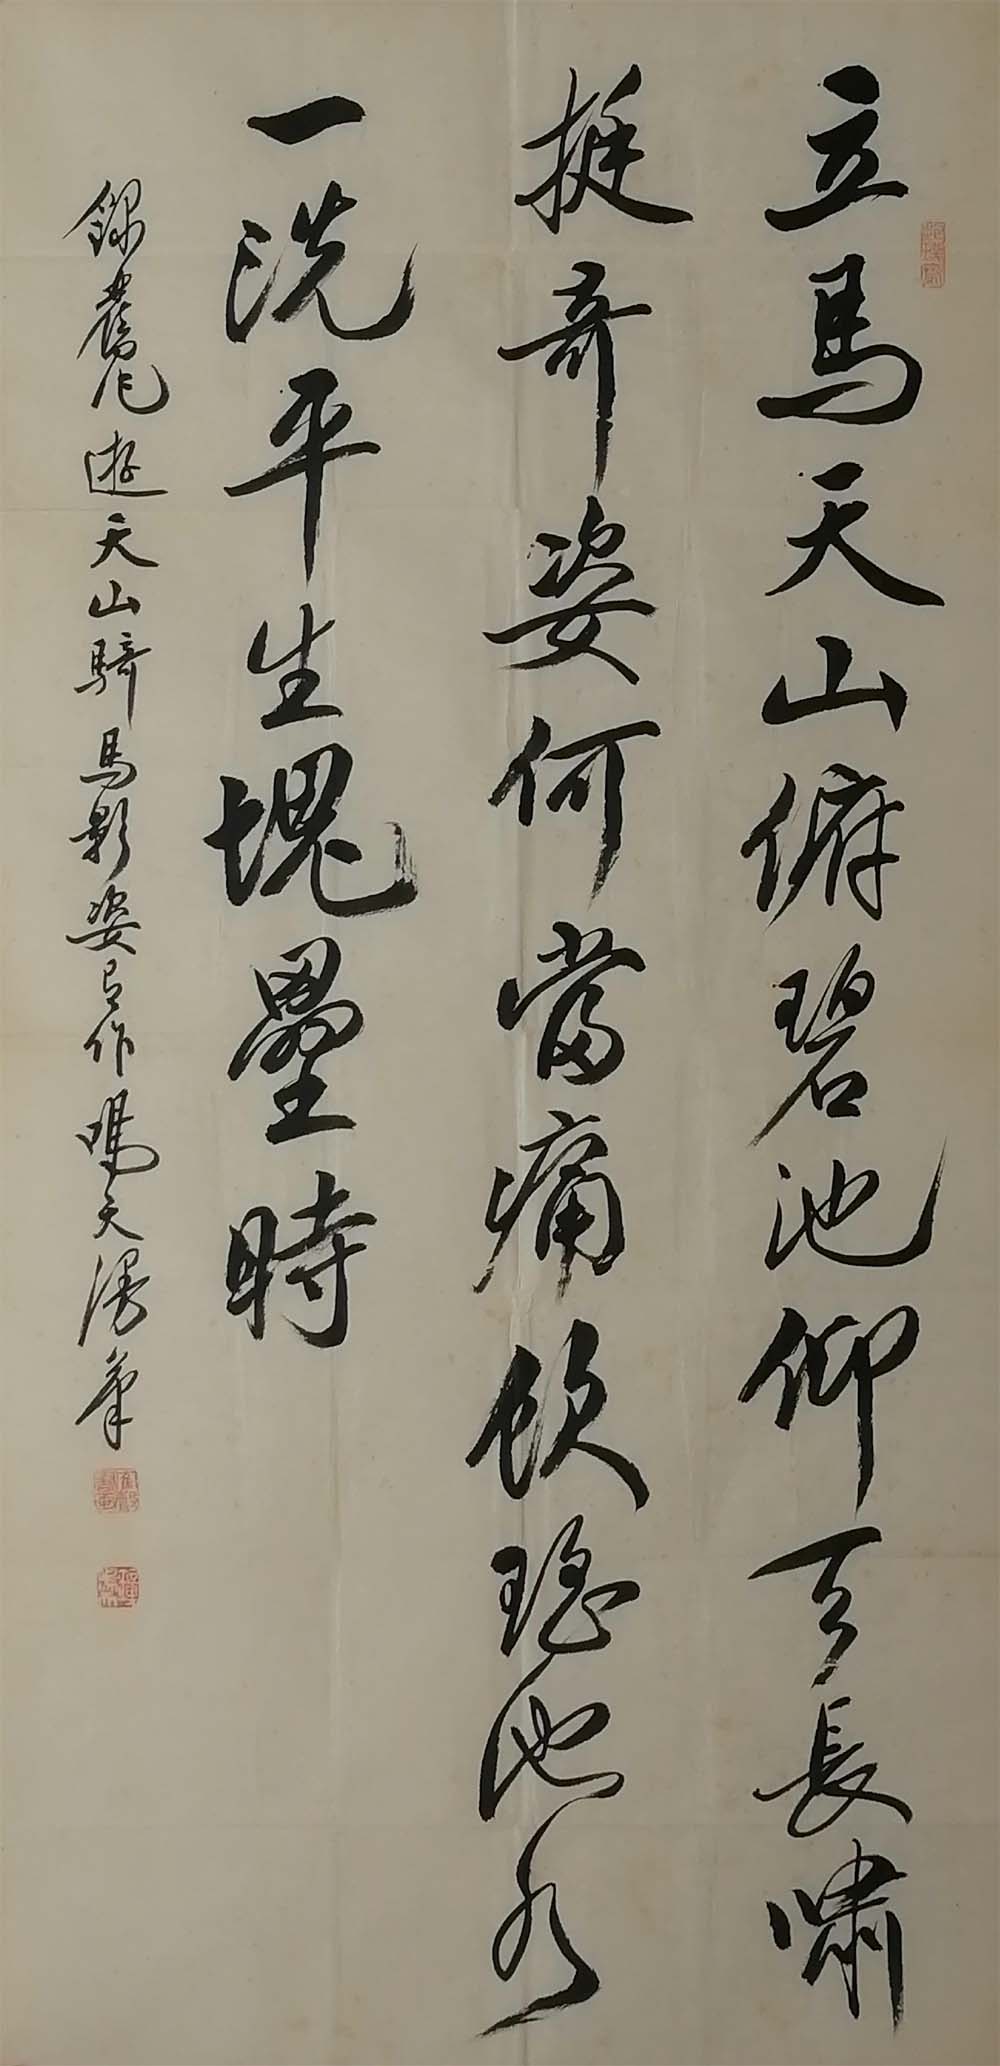 立馬天山俯碧池仰天長嘯
挺奇姿何當痛飲瑤池水
一洗平生塊壘時
錄農尼遊天山騎馬影姿有作鳴天漫筆